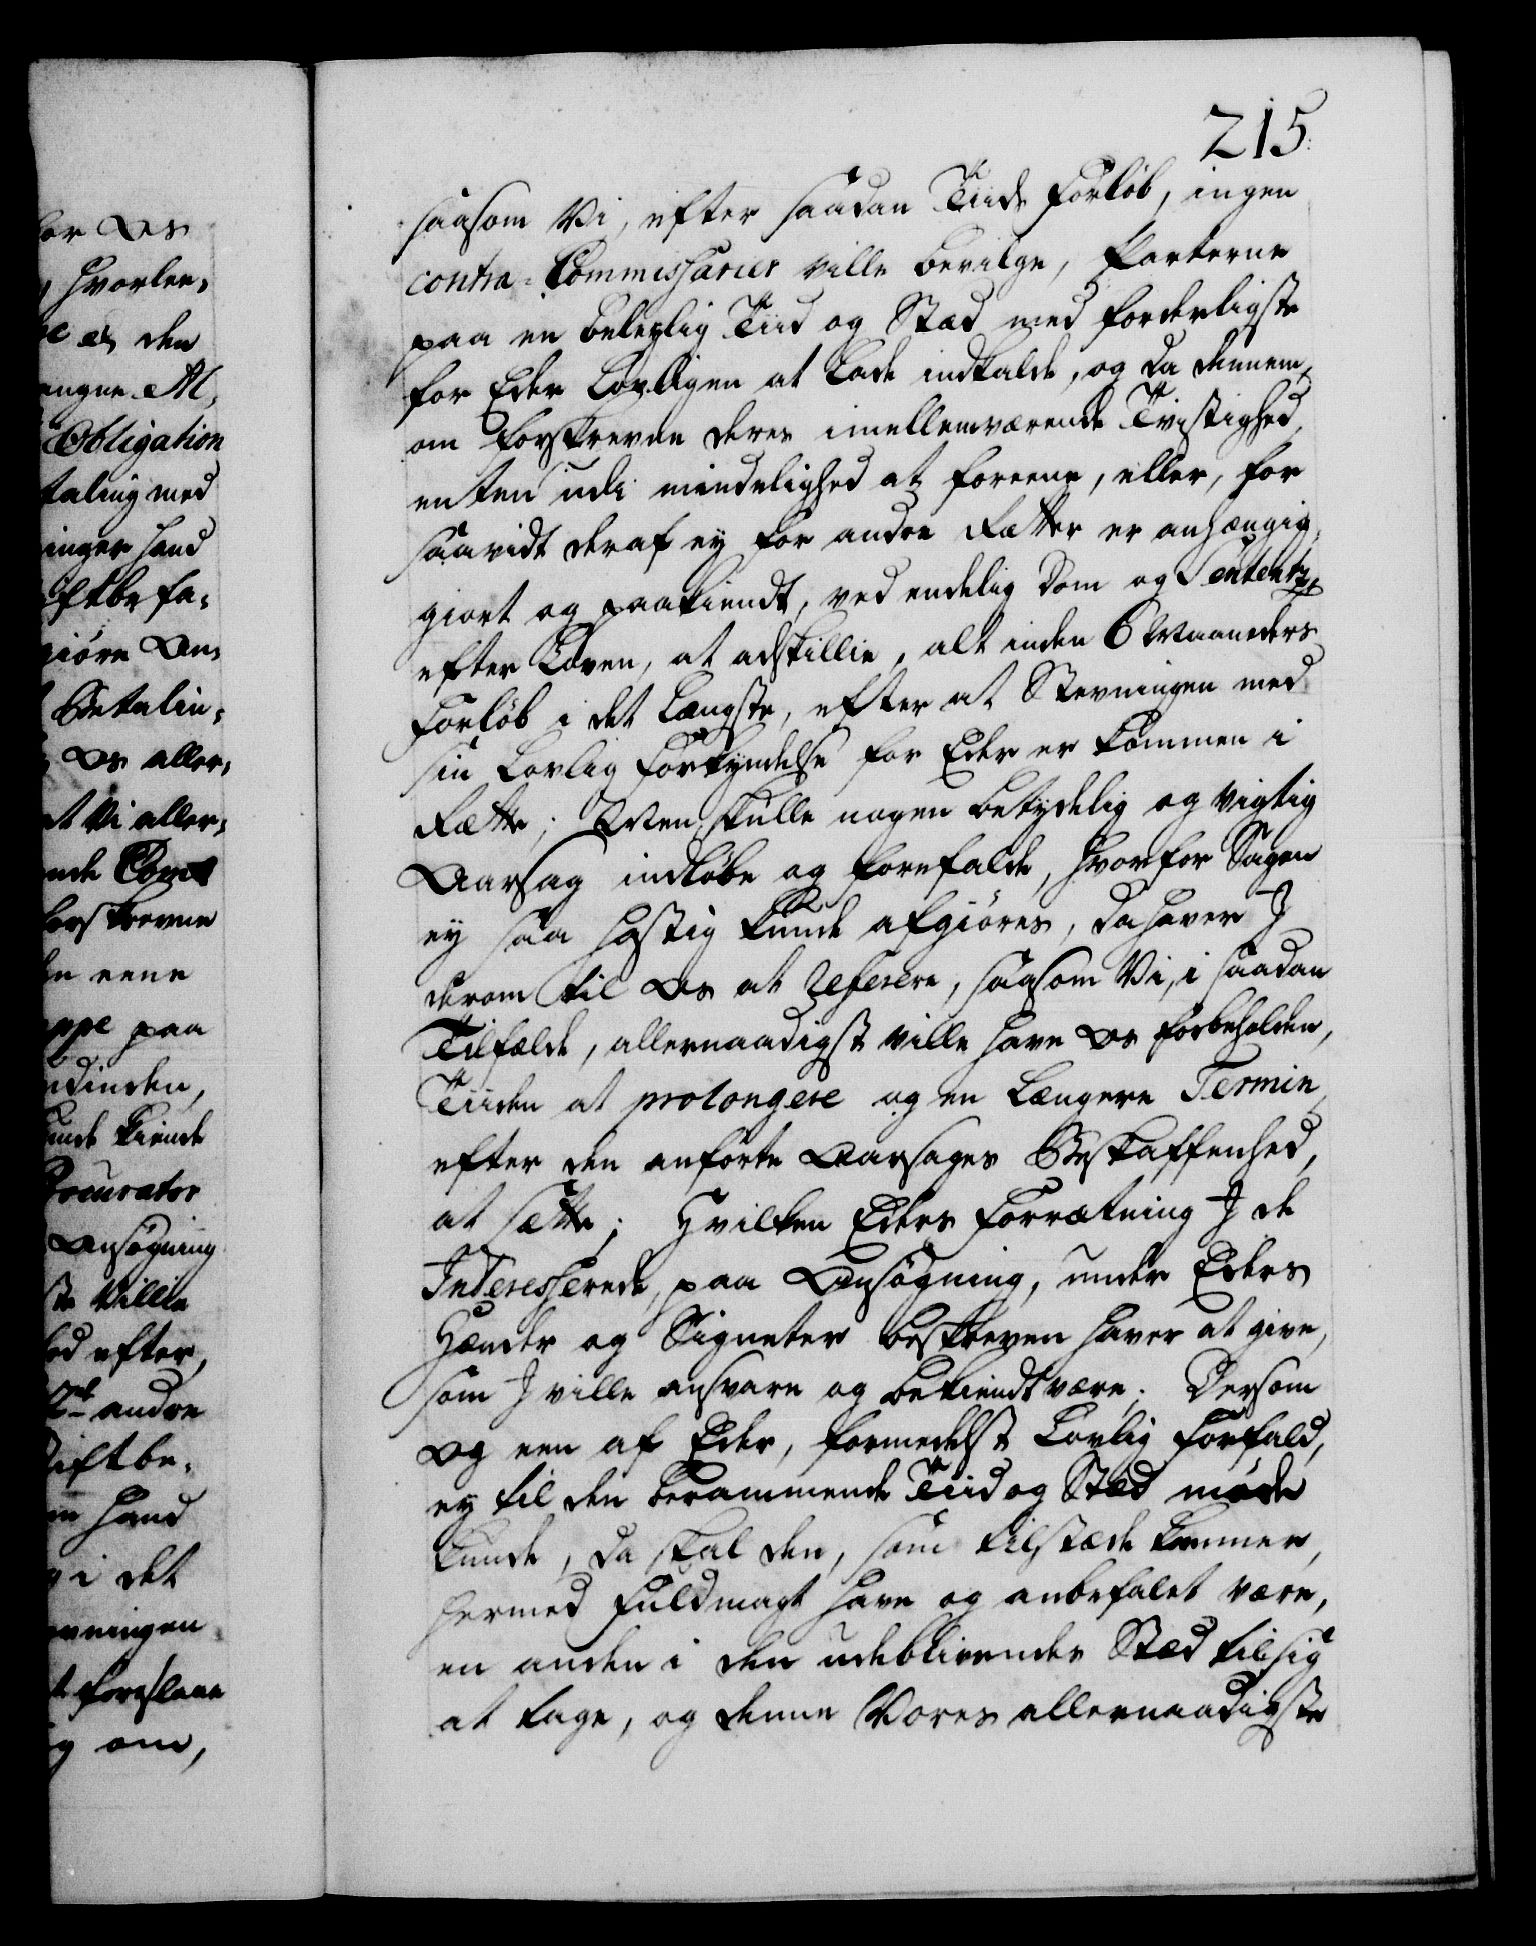 215.
saasom Vi, efter saadan Tiids Forløb, ingen
contra-Commissarier ville bevilge, Parterne
paa en beleylig Tiid og Stæd med forderligste
for Eder Lovligen at lade indkalde, og da dennem,
om forskrevne deres imellemværende Tvistighed,
enten udi mindelighed at foreene, eller, for
saavidt deraf ey for andre Rætter er anhængig-
giort og paakiendt, ved endelig Dom og Sententz,
efter Loven, at adskillie, alt inden 6 Maaneders
Forløb i det Længste, efter at Stevningen med
sin Lovlig Forkyndelse for Eder er kommen i
Rætte; Men skulle nogen betydelig og vigtig
Aarsag indløbe og forefalde, hvorfor Sagen
ey saa hastig kunde afgiøres, da haver I
derom til Os at referere, saasom Vi, i saadan
Tilfælde, allernaadigst ville have Os forbeholden,
Tiiden at prolongere og en Længere Termin,
efter den anførte Aarsages Beskaffenhed,
at sætte; Hvilken Eders Forrætning I de
Interesserede, paa Ansøgning, under Eders
Hænder og Signeter beskreven haver at give,
som I ville ansvare og bekiendt være. Dersom
og een af Eder, formedelst Lovlig Forfald,
ey til den berammende Tiid og Stæd møde
kunde, da skal den, som tilstæde kommer,
hermed Fuldmagt have og anbefalet være,
en anden i den udeblivendes Stæd til sig
at tage, og denne Vores allernaadigste
for Os
hvorlee-
den
Obligation
taling med
inger hand
giøre An-
Betalin-
Os aller-
at Vi aller-
forskrevne
een eene
paa
kunde kiende
Procurator
Ansøgning
Villie
efter,
andre
Stiftbe-
hand
i det
foreslaae
om,